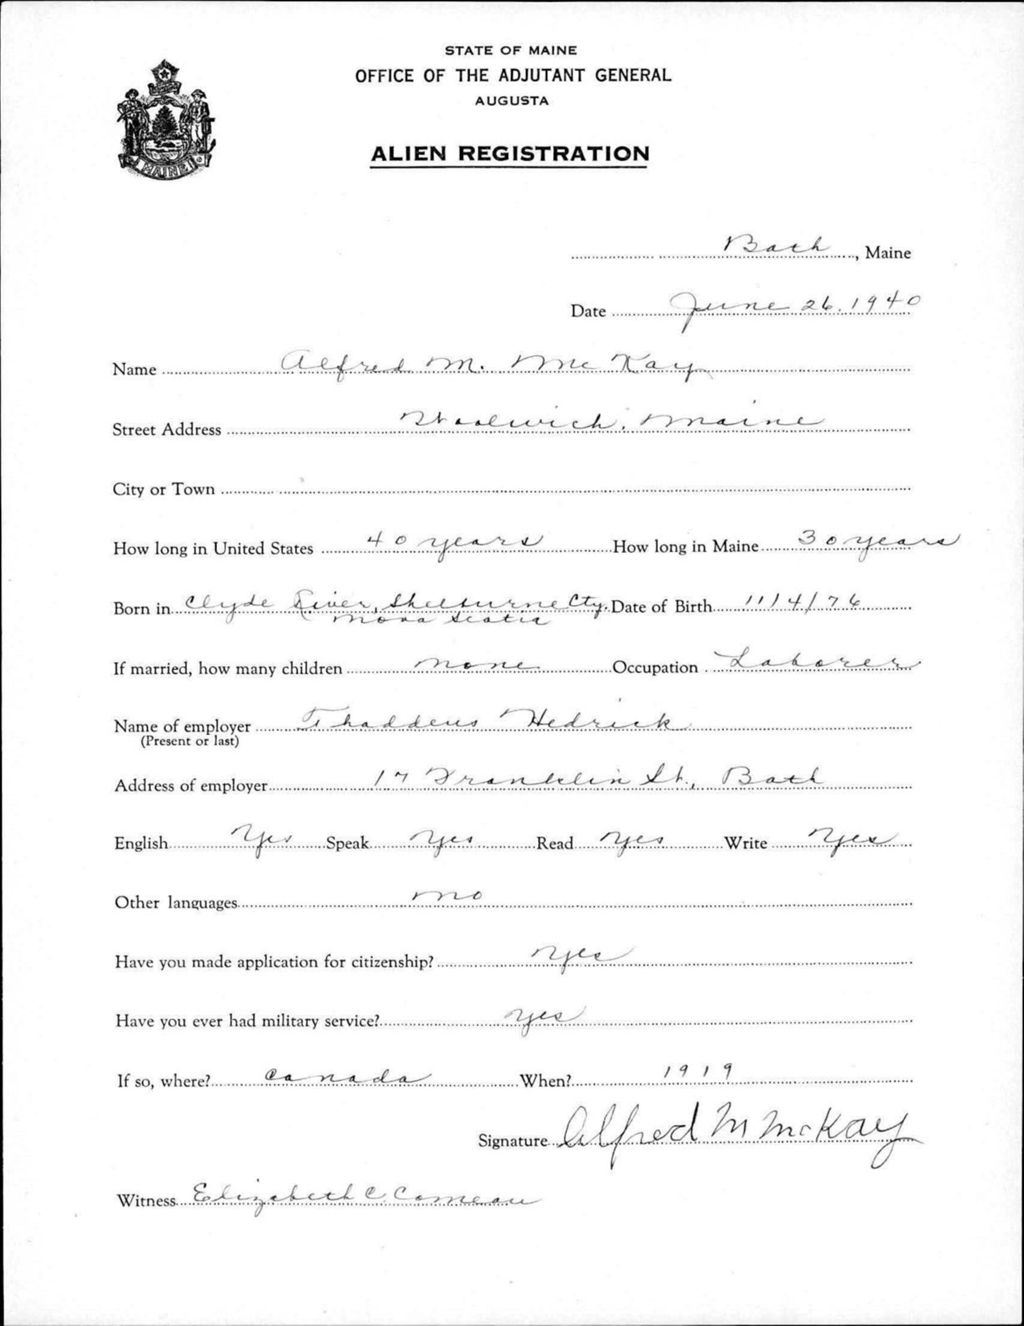 STATE OF MAINE
OFFICE OF THE ADJUTANT GENERAL
AUGUSTA
ALIEN REGISTRATION
MAINE
Bath, Maine
Date June 26, 1940
Name Alfred M. McKay
Street Address Woolwich, Maine
City or Town
How long in United States 40 years How long in Maine 30 years
Born in Clyde River, Shelburne Cty. Date of Birth 11/4/76
Nova Scotia
If married, how many children none Occupation Laborer
Name of employer Thaddeus Hedrick
(Present or last)
Address of employer 17 Franklin St., Bath
English Yes Speak Yes Read Yes Write Yes
Other languages no
Have you made application for citizenship? Yes
Have you ever had military service? Yes
If so, where? Canada When? 1919
Signature Alfred M McKay
Witness Elizabeth C. Comeau